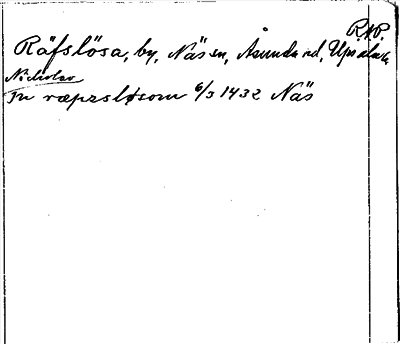 R.A.P.
Räfslösa, by, Näs sn, Åsunda hd, Upsala l.
In ræpzsløsom 6/3 1432 Näs